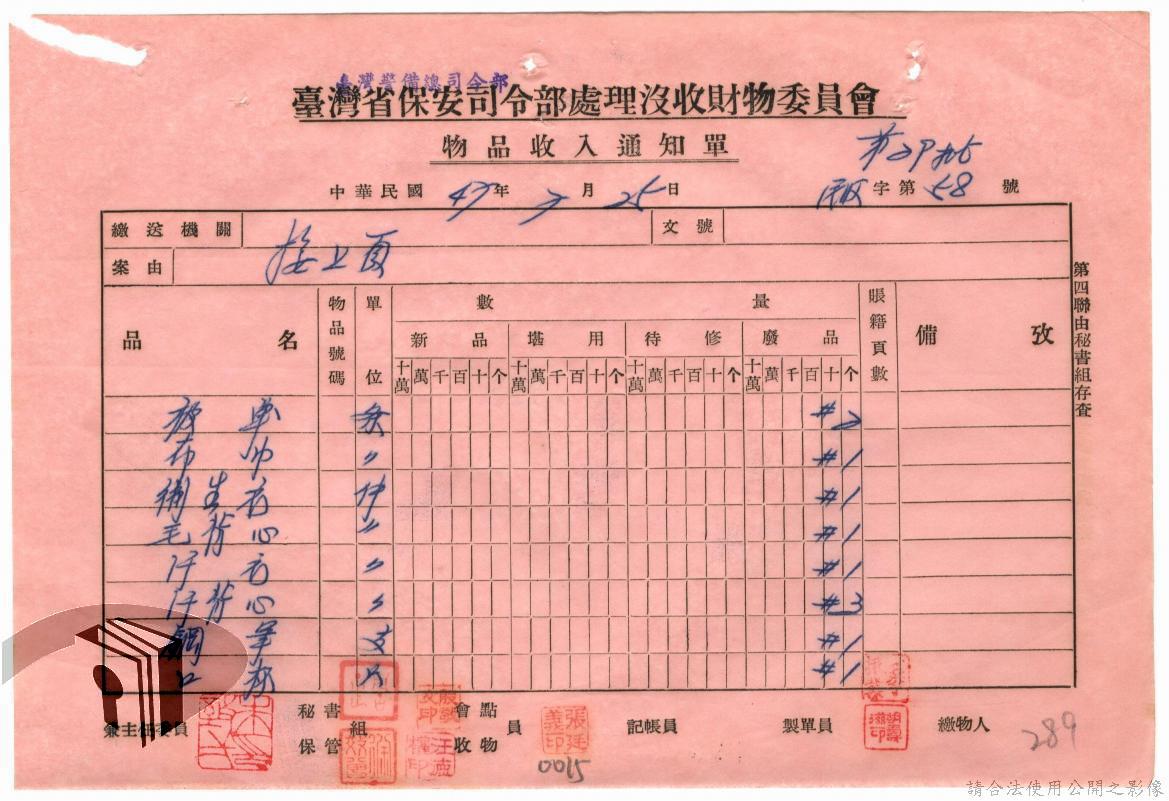 臺灣警備總司令部
臺灣省保安司令部處理沒收財物委員會
物品收入通知單
中華民國 47年 7月 25日 字第 58 號
繳送機關 文號
案由 接上頁
品名 物品號碼 單位 數量 賬籍頁數 備攷
新品 堪用 待修 廢品
十萬 萬 千 百 十 个 十萬 萬 千 百 十 个 十萬 萬 千 百 十 个 十萬 萬 千 百 十 个
單 #2
布巾 〃 #1
衛生衣 件 #1
毛背心 〃 #1
汗衣 〃 #1
汗背心 〃 #3
鋼筆 支 #1
口 #1
第四聯由秘書組存查
兼主任委員 秘書組 會點員 記帳員 製單員 繳物人
保管 收物
張廷義印
0015
289
請合法使用公開之影像